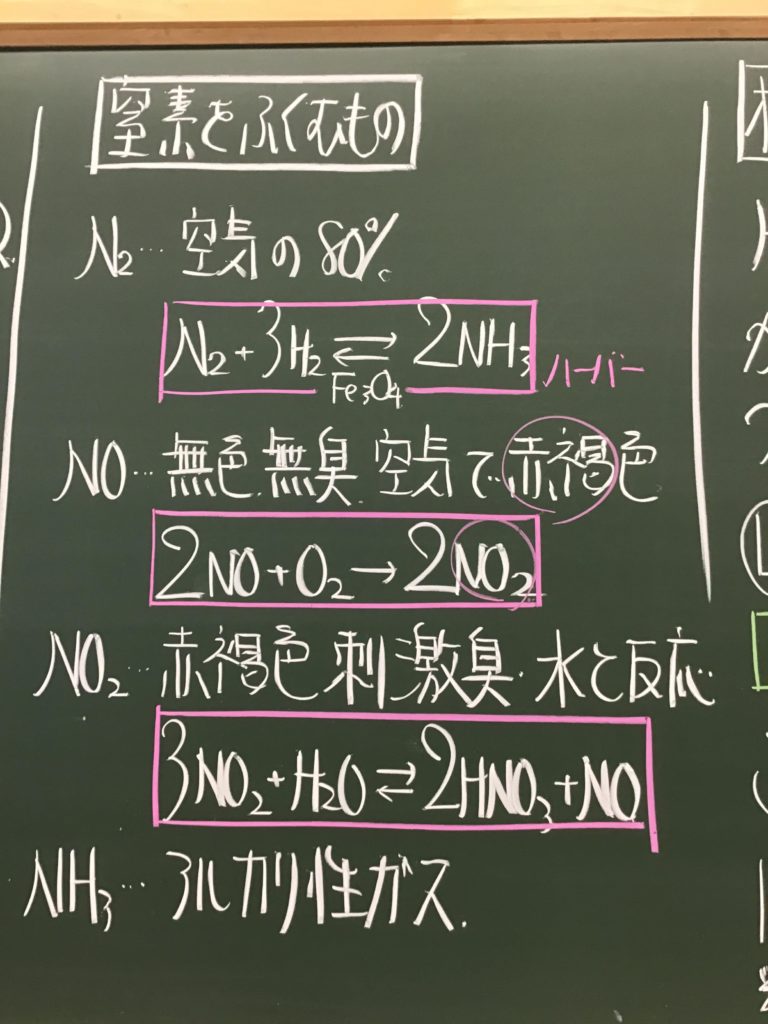 窒素をふくむもの
N₂… 空気の80%
N₂+3H₂⇄2NH₃ ハーバー
Fe₃O₄
NO… 無色.無臭.空気で赤褐色
2NO+O₂→2NO₂
NO₂… 赤褐色 刺激臭.水と反応.
3NO₂+H₂O⇄2HNO₃+NO
NH₃… アルカリ性ガス.